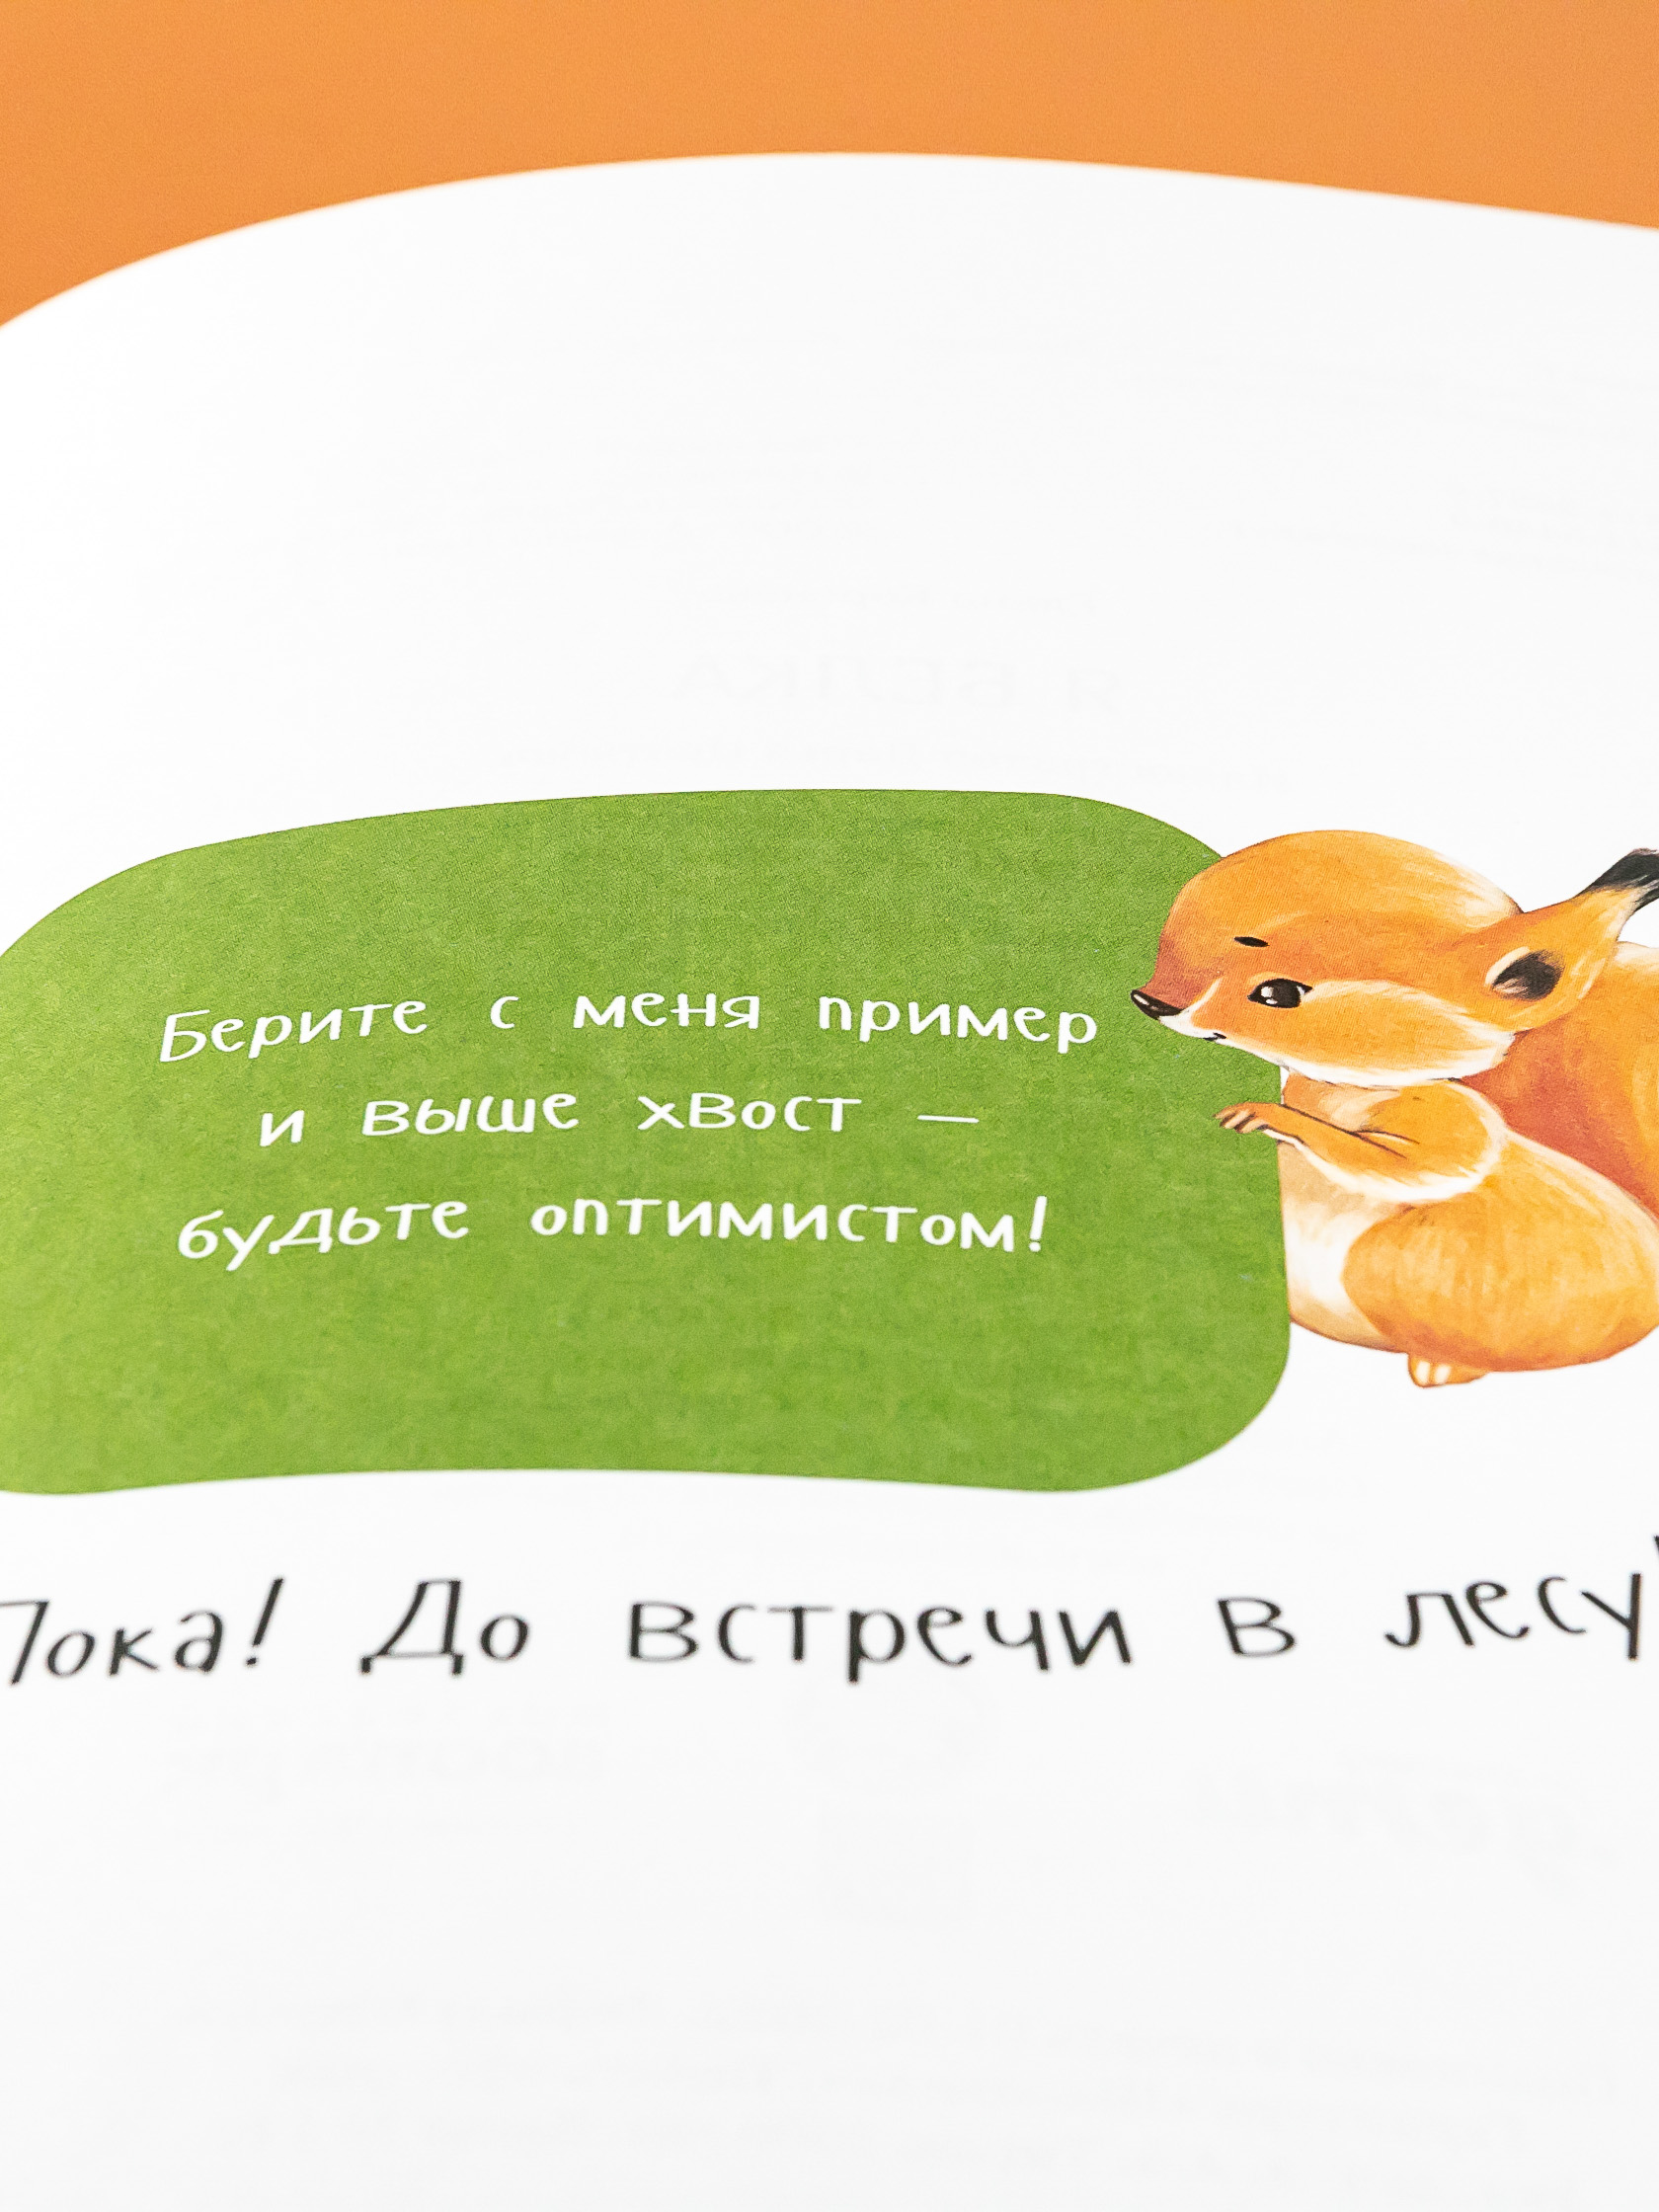 Берите с меня пример
и выше хвост —
будьте оптимистом!
Пока! До встречи в лесу!